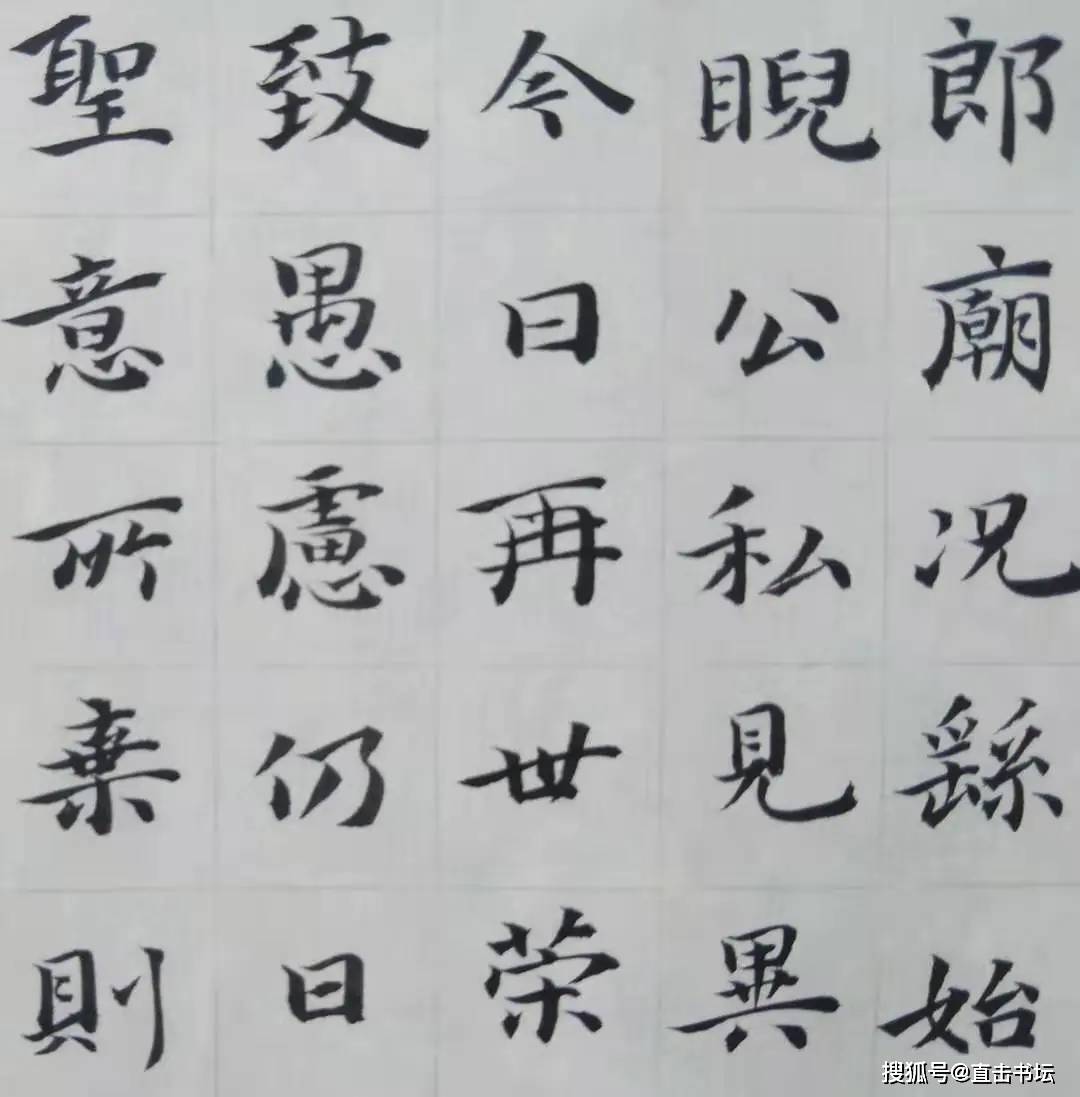 郎廟况繇始
睨公私見異
今日再世荣
致愚慮仍日
聖意所棄則
搜狐号@直击书坛